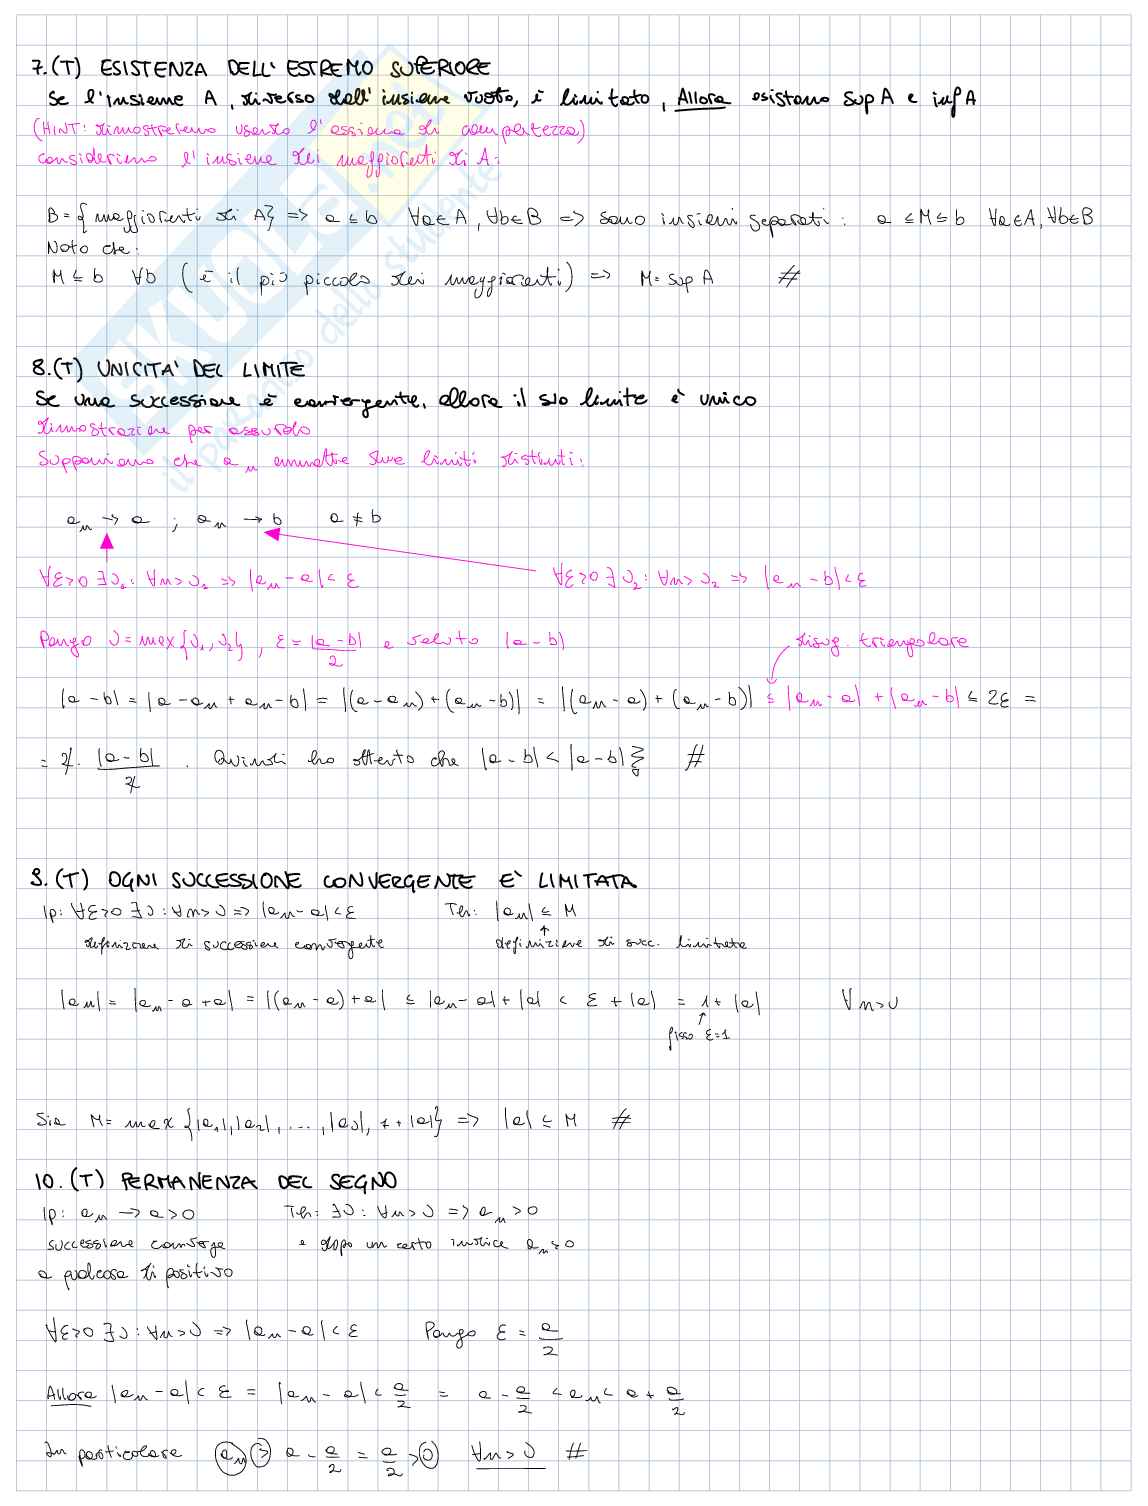 7.(T) ESISTENZA DELL'ESTREMO SUPERIORE
Se l'insieme A, diverso dall'insieme vuoto, è limitato, Allora esistono sup A e inf A
(HINT: dimostreremo usando l'assioma di completezza)
consideriamo l'insieme dei maggioranti di A:
B = {maggioranti di A} => a ≤ b ∀a∈A, ∀b∈B => sono insiemi separati: a ≤ M ≤ b ∀a∈A, ∀b∈B
Noto che:
M ≤ b ∀b (è il più piccolo dei maggioranti) => M = sup A #
8.(T) UNICITA' DEL LIMITE
Se una successione è convergente, allora il suo limite è unico
dimostrazione per assurdo
Supponiamo che aₙ ammette due limiti distinti:
aₙ → a ; aₙ → b a ≠ b
∀ε>0 ∃ν₁: ∀n>ν₁ => |aₙ - a| < ε ∀ε>0 ∃ν₂: ∀n>ν₂ => |aₙ - b| < ε
Pongo ν = max{ν₁, ν₂}, ε = |a - b|/2 e valuto |a - b| disug. triangolare
|a - b| = |a - aₙ + aₙ - b| = |(a - aₙ) + (aₙ - b)| = |(aₙ - a) + (aₙ - b)| ≤ |aₙ - a| + |aₙ - b| ≤ 2ε =
= 2 · |a - b|/2 . Quindi ho ottenuto che |a - b| < |a - b| #
9.(T) OGNI SUCCESSIONE CONVERGENTE E' LIMITATA
Ip: ∀ε>0 ∃ν: ∀n>ν => |aₙ - a| < ε Th: |aₙ| ≤ M
definizione di successione convergente ↑ definizione di succ. limitata
|aₙ| = |aₙ - a + a| = |(aₙ - a) + a| ≤ |aₙ - a| + |a| < ε + |a| = 1 + |a| ∀n>ν
↑ fisso ε=1
Sia M = max {|a₁|, |a₂|, ..., |aν|, 1 + |a|} => |a| ≤ M #
10.(T) PERMANENZA DEL SEGNO
Ip: aₙ → a > 0 Th: ∃ν: ∀n>ν => aₙ > 0
successione converge e dopo un certo indice aₙ>0
a qualcosa di positivo
∀ε>0 ∃ν: ∀n>ν => |aₙ - a| < ε Pongo ε = a/2
Allora |aₙ - a| < ε = |aₙ - a| < a/2 = a - a/2 < aₙ < a + a/2
In particolare aₙ > a - a/2 = a/2 > 0 ∀n>ν #